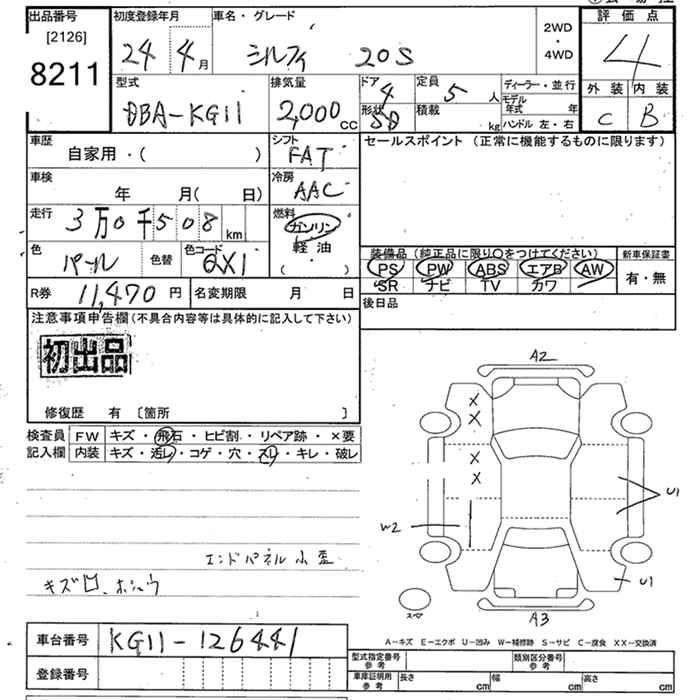 出品番号 初度登録年月 車名・グレード 2WD 評価点
[2126] 24 4月 シルフィ 20S ・
8211 4WD 4
型式 排気量 ドア 定員 ディーラー・並行 外装 内装
DBA-KG11 2,000cc 4 5人 モデル年式 年 C B
形状 積載 ハンドル 左・右
SD kg
車歴 シフト セールスポイント (正常に機能するものに限ります)
自家用・( ) FAT
車検 冷房
年 月( 日) AAC
走行 燃料
3万0千508km ガソリン
軽油
色 色替 色コード ・
パール QX1 ( )
装備品(純正品に限り〇をつけてください) 新車保証書
PS PW ABS エアB AW 有・無
SR ナビ TV カワ
R券 11,470円 名変期限 月 日 後日品
注意事項申告欄(不具合内容等は具体的に記入して下さい)
初出品
修復歴 有 〔箇所 〕
検査員 FW キズ・飛石・ヒビ割・リペア跡・×要
記入欄 内装 キズ・汚レ・コゲ・穴・スレ・キレ・破レ
A2
X
X
X
X
U1
W2
U1
スペア
A3
エンドパネル小歪
キズ凹、ホシュウ
A-キズ E-エクボ U-凹み W-補修跡 S-サビ C-腐食 XX-交換済
車台番号 KG11-126441
登録番号
型式指定番号 参考 類別区分番号 参考
車庫証明用 参考 長さ cm 幅 cm 高さ cm